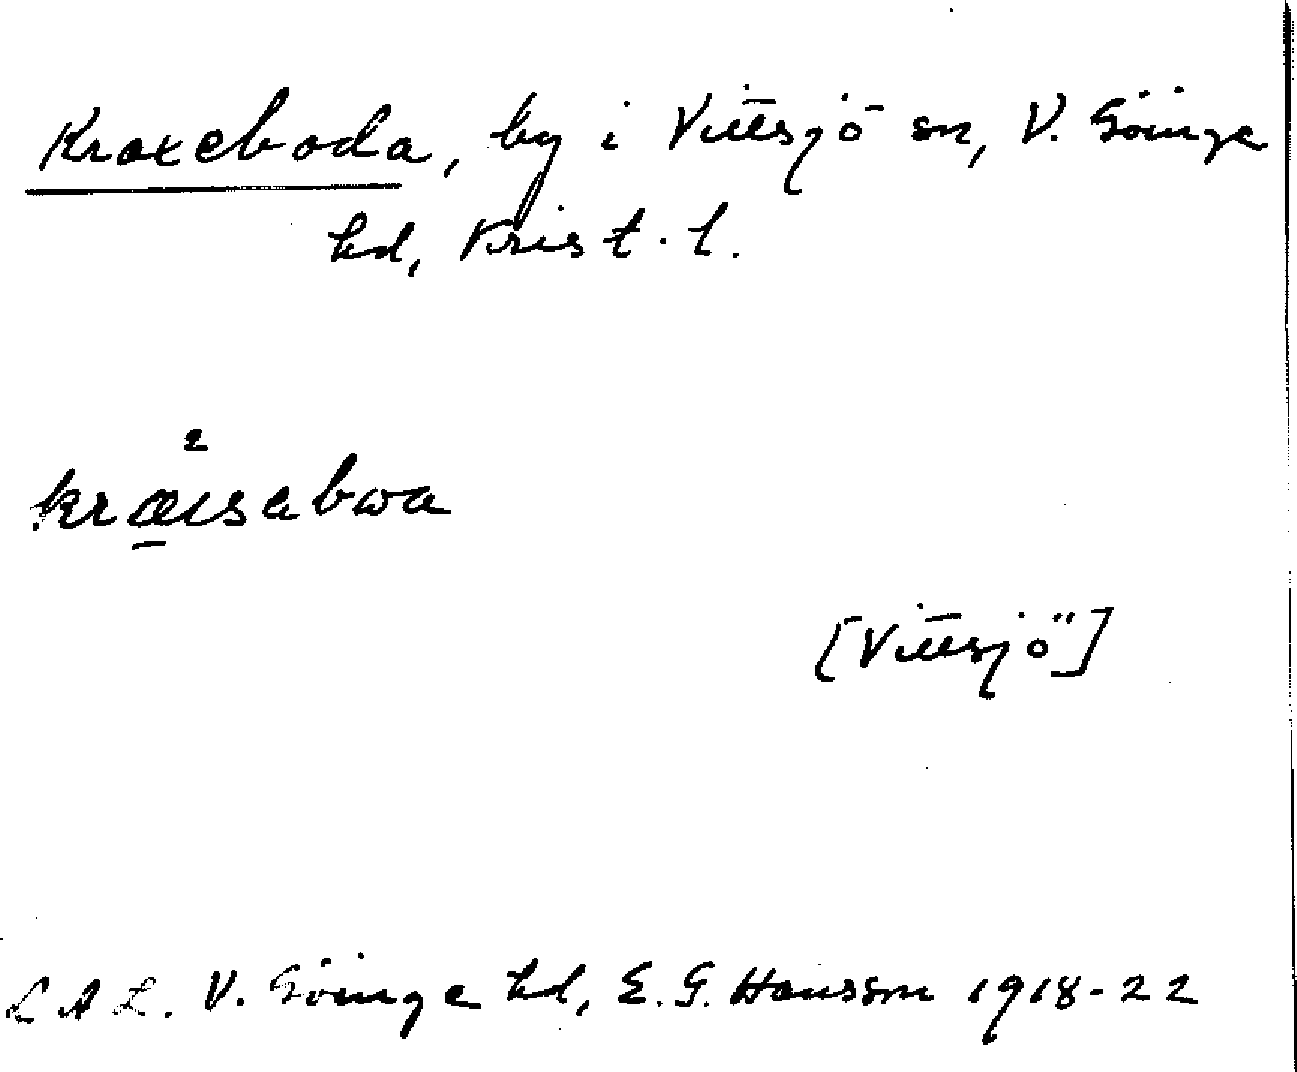 Kraxeboda, by i Vittsjö sn, V. Göinge
hd, Krist. l.
2
kræisabωa
[Vittsjö]
L A L. V. Göinge hd, E. G. Hansson 1918-22